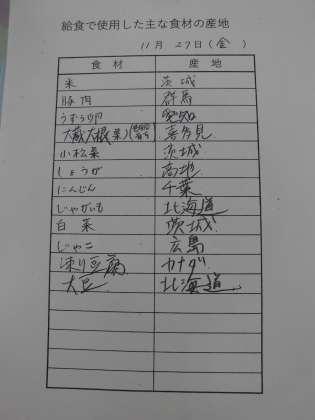 給食で使用した主な食材の産地
11月 27日(金)
食材 産地
米 茨城
豚肉 群馬
うずら卵 愛知
大蔵大根(菜) 喜多見
小松菜 茨城
しょうが 高知
にんじん 千葉
じゃがいも 北海道
白菜 茨城
じゃこ 広島
凍り豆腐 カナダ
大豆 北海道